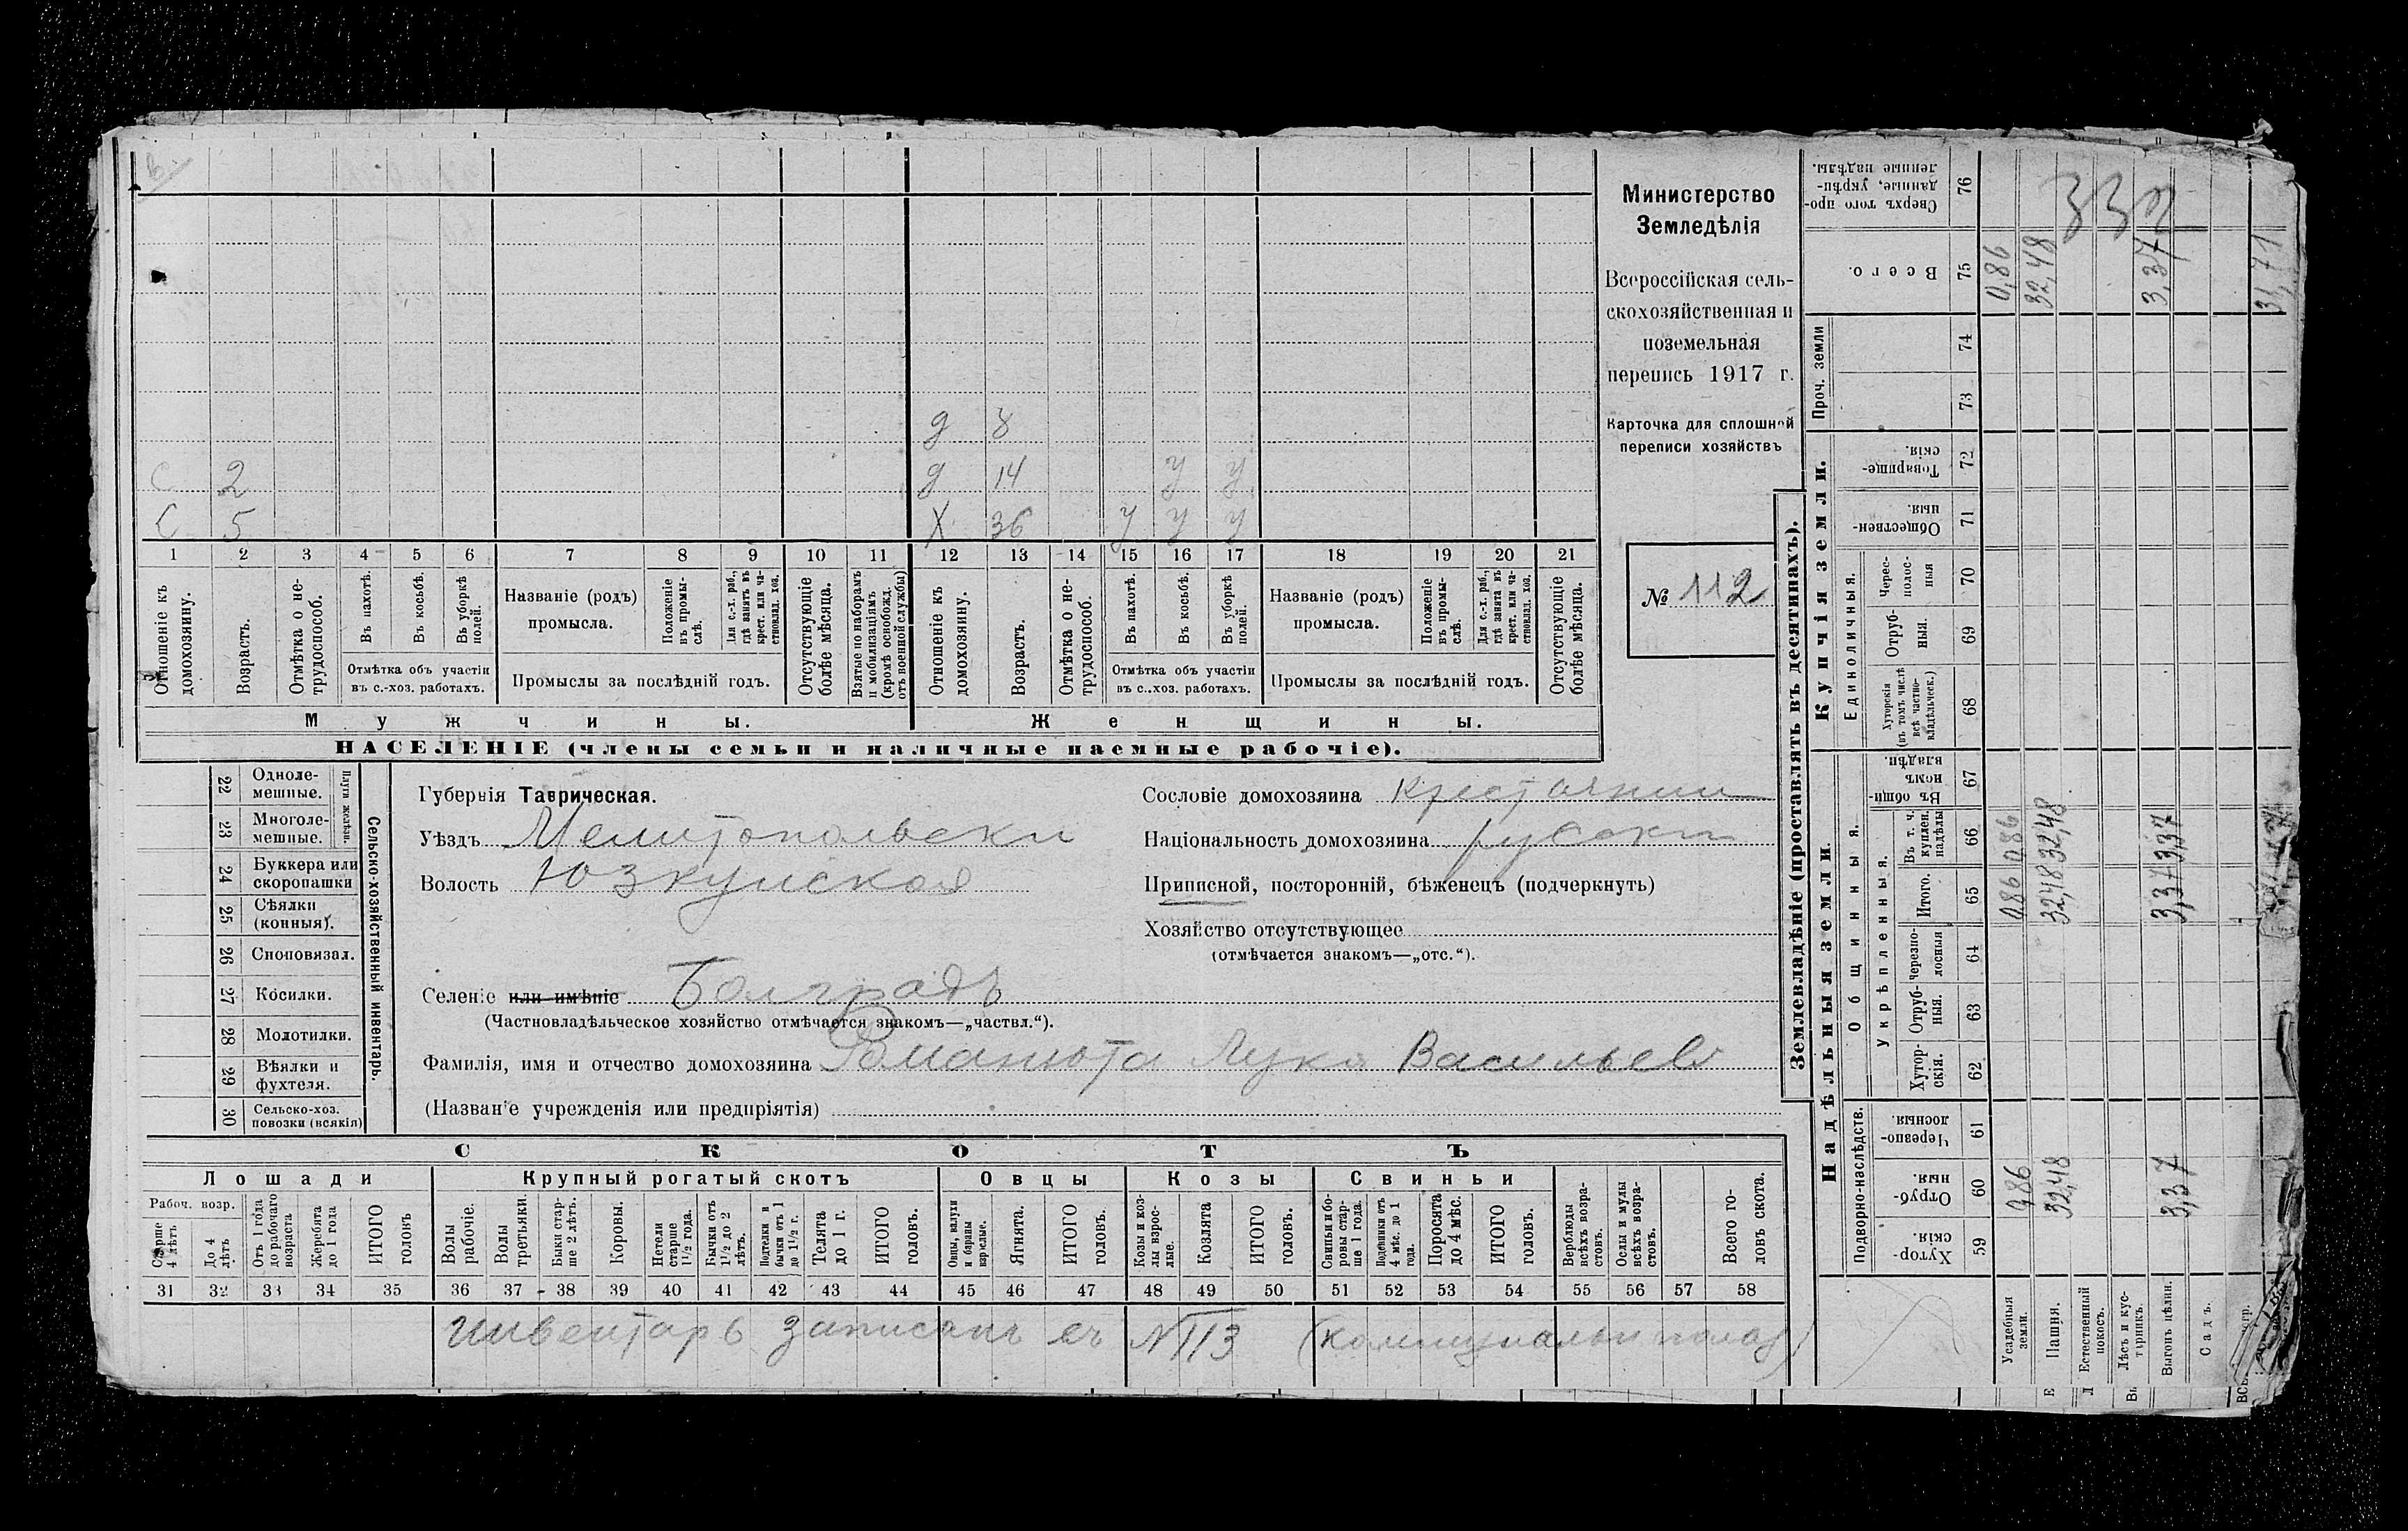 Министерство
Земледѣлія
Всероссійская сель-
скохозяйственная и
поземельная
перепись 1917 г.
Карточка для сплошной
переписи хозяйствъ
№ 112
д 8
с 2 д 14 у у
с 5 х 36 у у у
1 2 3 4 5 6 7 8 9 10 11 12 13 14 15 16 17 18 19 20 21
Отношеніе къ домохозяину.
Возрастъ.
Отмѣтка о не-трудоспособ.
Въ пахотѣ.
Въ косьбѣ.
Въ уборкѣ полей.
Отмѣтка объ участіи
въ с.-хоз. работахъ.
Названіе (родъ)
промысла.
Положеніе въ промы-слѣ.
Для с.-х. раб., гдѣ занятъ въ крест. или ча-стновлад. хоз.
Промыслы за послѣдній годъ.
Отсутствующіе болѣе мѣсяца.
Взятые по наборамъ и мобилизаціямъ (кромѣ освобожд. отъ военной службы)
Отношеніе къ домохозяину.
Возрастъ.
Отмѣтка о не-трудоспособ.
Въ пахотѣ.
Въ косьбѣ.
Въ уборкѣ полей.
Отмѣтка объ участіи
въ с.-хоз. работахъ.
Названіе (родъ)
промысла.
Положеніе въ промы-слѣ.
Для с.-х. раб., гдѣ занята въ крест. или ча-стновлад. хоз.
Промыслы за послѣдній годъ.
Отсутствующіе болѣе мѣсяца.
Мужчины. Женщины.
НАСЕЛЕНІЕ (члены семьи и наличные наемные рабочіе).
Сельско-хозяйственный инвентарь.
Плуги желѣзн.
22 Одноле-мешные.
23 Многоле-мешные.
24 Буккера или скоропашки
25 Сѣялки (конныя).
26 Сноповязал.
27 Косилки.
28 Молотилки.
29 Вѣялки и фухтеля.
30 Сельско-хоз. повозки (всякія)
Губернія Таврическая.
Уѣздъ Мелитопольски
Волость Юзкуйская
Сословіе домохозяина крестьянин
Національность домохозяина русски
Приписной, посторонній, бѣженецъ (подчеркнуть)
Хозяйство отсутствующее
(отмѣчается знакомъ—„отс.“).
Селеніе или имѣніе Болградъ
(Частновладѣльческое хозяйство отмѣчается знакомъ—„частвл.“).
Фамилія, имя и отчество домохозяина Романюта Лука Васильев
(Названіе учрежденія или предпріятія)
СКОТЪ
Лошади Крупный рогатый скотъ Овцы Козы Свиньи
Рабоч. возр.
Старше 4 лѣтъ
До 4 лѣтъ
Отъ 1 года до рабочаго возраста
Жеребята до 1 года
ИТОГО головъ
Волы рабочіе.
Волы третьяки.
Быки стар-ше 2 лѣтъ.
Коровы.
Нетели старше 1½ года.
Бычки отъ 1½ до 2 лѣтъ.
Подтелки и бычки отъ 1 до 1½ г.
Телята до 1 г.
ИТОГО головъ.
Овцы, валухи и бараны взрослые.
Ягнята.
ИТОГО головъ.
Козы и коз-лы взрос-лые.
Козлята
ИТОГО головъ.
Свиньи и бо-ровы стар-ше 1 года.
Подсвинки отъ 4 мѣс. до 1 года.
Поросята до 4 мѣс.
ИТОГО головъ.
Верблюды всѣхъ возра-стовъ.
Ослы и мулы всѣхъ возра-стовъ.
Всего го-ловъ скота.
31 32 33 34 35 36 37 38 39 40 41 42 43 44 45 46 47 48 49 50 51 52 53 54 55 56 57 58
Инвентарь записанъ въ №113
Землевладѣніе (проставлять въ десятинахъ).
Надѣльныя земли.
Купчія земли.
Проч. земли
Подворно-наслѣдств.
Общинныя.
Укрѣпленныя.
Единоличныя.
Сверхъ того про-данные, укрѣп-ленные надѣлы. 76
Всего. 75 0,86 32,48 3,37
74
73
Товарище-скія. 72
Обществен-ныя. 71
Черес-полос-ныя 70
Отруб-ныя. 69
Хуторскія (въ томъ числѣ всѣ частно-владѣльческ.) 68
Въ общин-номъ владѣн. 67
Въ т. ч. куплен. надѣлы 66 0,86 32,48 3,37
Итого. 65 0,86 32,48 3,37
Черезпо-лосныя 64
Отруб-ныя. 63
Хутор-скія. 62
Черезпо-лосныя. 61
Отруб-ныя. 60 0,86 32,48 3,37
Хутор-скія. 59
Усадебныя земли.
Пашня.
Естественный покосъ.
Лѣсъ и кус-тарникъ.
Выгонъ цѣлин.
Садъ.